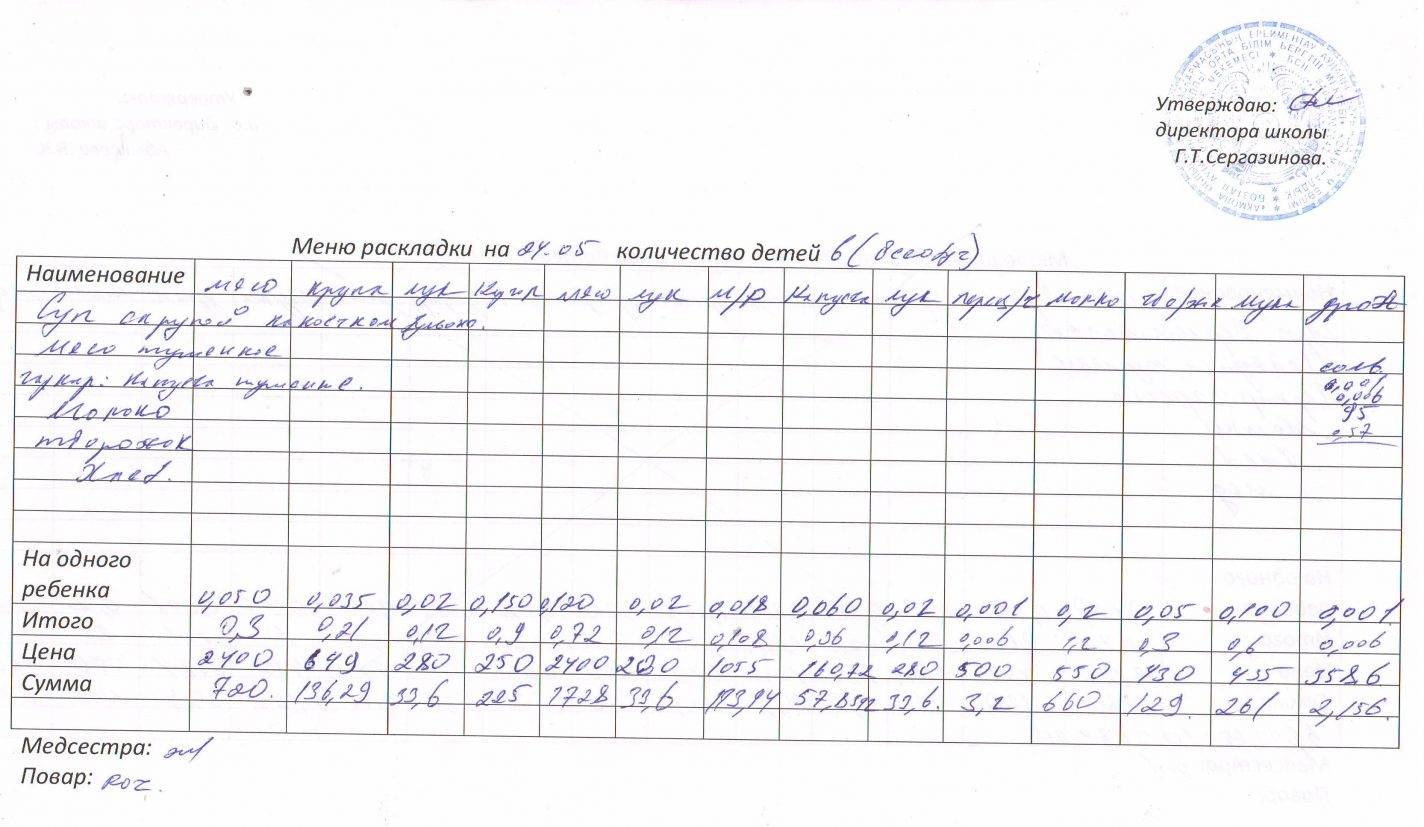 Утверждаю:
директора школы
Г.Т.Сергазинова.
Меню раскладки на 24.05 количество детей 6 (
Наименование мясо крупа лук мясо лук м/р Капуста лук молко мука
Суп с крупой на костном
Мясо тушенное соль
гарнир: Капуста 0,001
0,006
Молоко 95
творожок 0,57
Хлеб.
На одного
ребенка 0,050 0,035 0,02 0,150 0,120 0,02 0,018 0,060 0,02 0,001 0,2 0,05 0,100 0,001
Итого 0,3 0,21 0,12 0,9 0,72 0,12 0,108 0,36 0,12 0,006 1,2 0,3 0,6 0,006
Цена 2400 649 280 250 2400 280 1055 160,72 280 500 550 430 435 358,6
Сумма 720. 136,29 33,6 225 1728 33,6 57,8592 33,6. 3,2 660 129. 261 2,156.
Медсестра:
Повар: